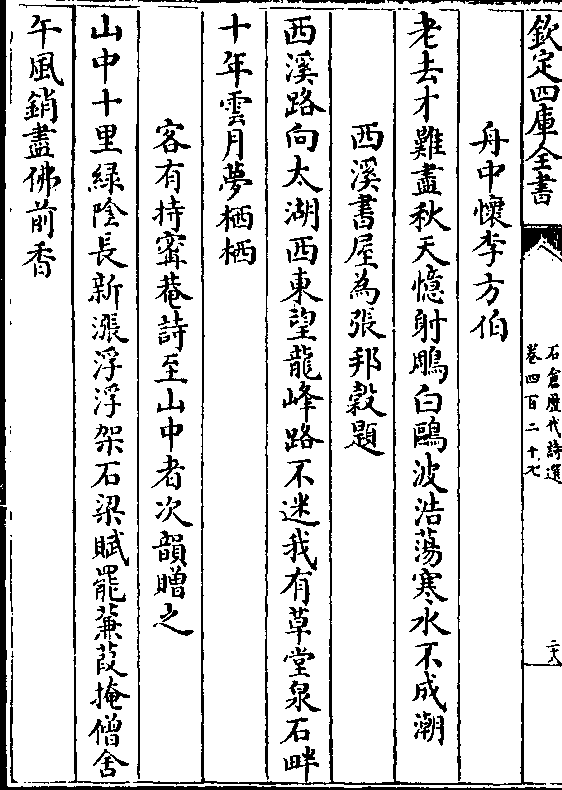 欽定四庫全書
石倉歷代詩選
卷四百二十七
二十八
舟中懷李方伯
老去才難盡秋天憶射鵰白鷗波浩蕩寒水不成潮
西溪書屋為張邦穀題
西溪路向太湖西東望龍峰路不迷我有草堂泉石畔
十年雲月夢栖栖
客有持𡩋菴詩至山中者次韻贈之
山中十里緑陰長新漲浮浮架石梁賦罷蒹葭掩僧舍
午風銷盡佛前香